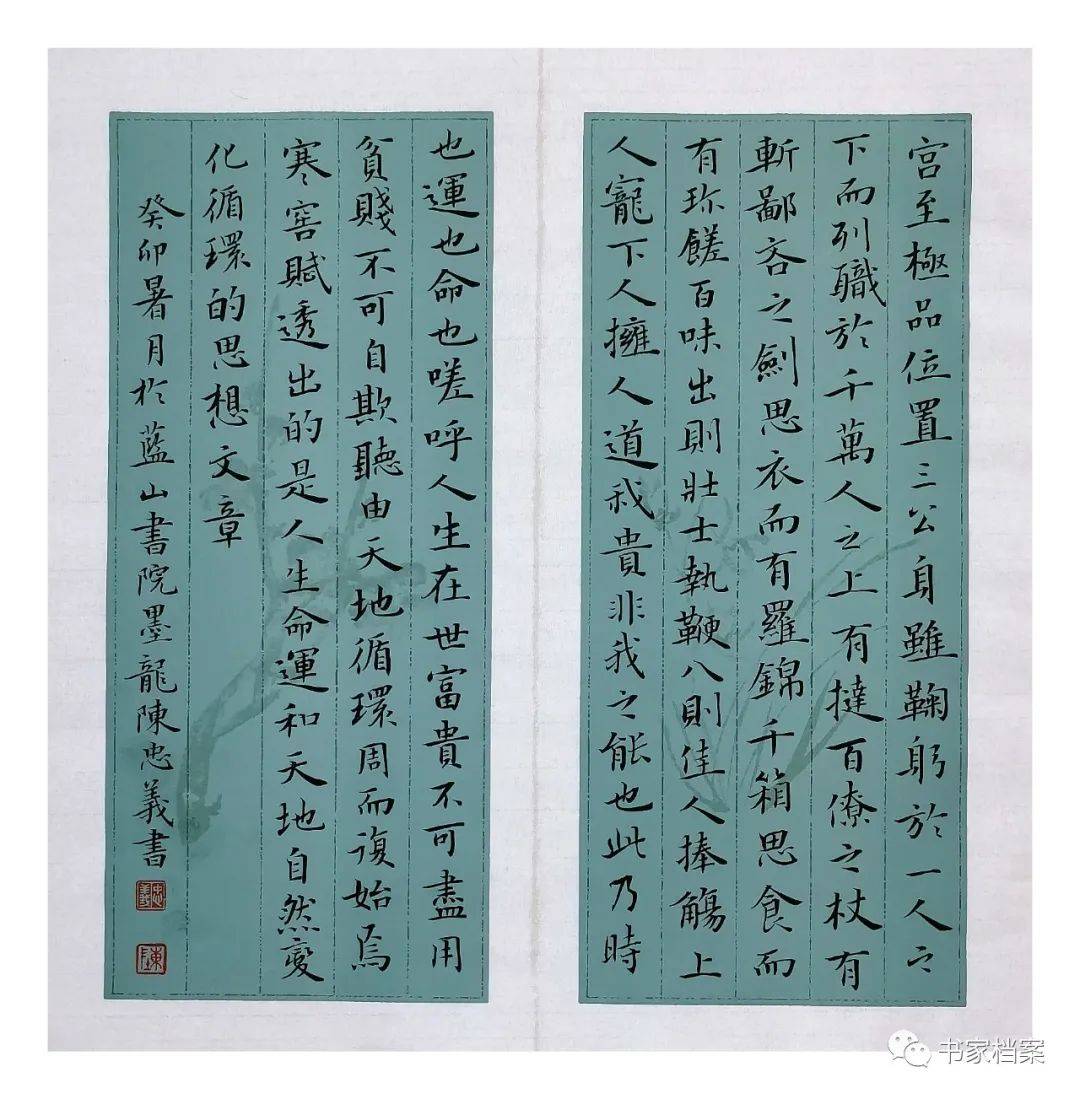 宫至極品位置三公身雖鞠躬於一人之
下而列職於千萬人之上有撻百僚之杖有
斬鄙吝之劍思衣而有羅錦千箱思食而
有珎饈百味出則壯士執鞭入則佳人捧觴上
人寵下人擁人道我貴非我之能也此乃時
也運也命也嗟呼人生在世富貴不可盡用
貧賤不可自欺聽由天地循環周而復始焉
寒窖賦透出的是人生命運和天地自然變
化循環的思想文章
癸卯暑月於藍山書院墨龍陳忠義書
忠義
陳
书家档案